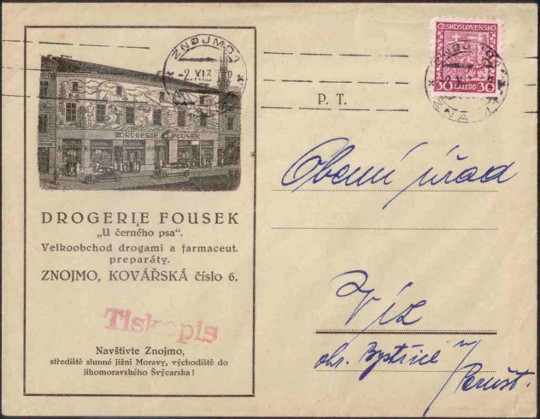 ZNOJMO 1
2.XI.3
ČESKOSLOVENSKO
30 HALÉŘŮ 30
P. T.
DROGERIE FOUSEK
DROGERIE FOUSEK
„U černého psa“.
Velkoobchod drogami a farmaceut.
preparáty.
ZNOJMO, KOVÁŘSKÁ číslo 6.
Tiskopis
Navštivte Znojmo,
středisko slunné jižní Moravy, východiště do
jihomoravského Švýcarska!
Obecní úřad
Víz
okr. Bystřice n/
Pernšt.